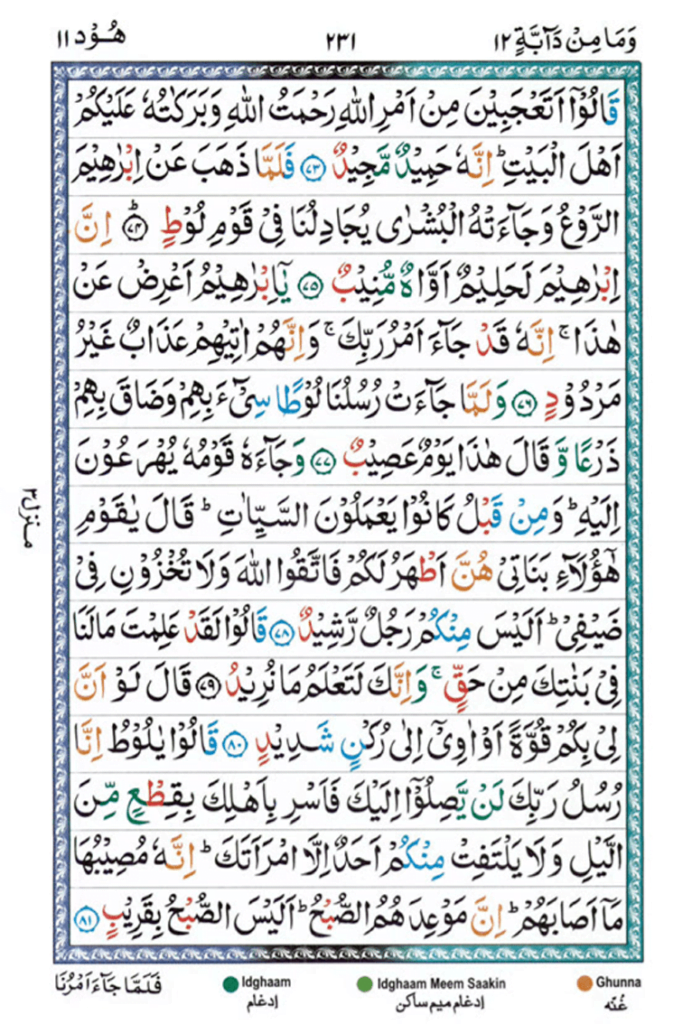 وَمَا مِنْ دَآبَّةٍ ١٢
٢٣١
هُوْد ١١
قَالُوْٓا اَتَعْجَبِيْنَ مِنْ اَمْرِ اللّٰهِ رَحْمَتُ اللّٰهِ وَبَرَكٰتُهٗ عَلَيْكُمْ
اَهْلَ الْبَيْتِ ؕ اِنَّهٗ حَمِيْدٌ مَّجِيْدٌ ﴿٧٣﴾ فَلَمَّا ذَهَبَ عَنْ اِبْرٰهِيْمَ
الرَّوْعُ وَجَآءَتْهُ الْبُشْرٰى يُجَادِلُنَا فِيْ قَوْمِ لُوْطٍ ؕ ﴿٧٤﴾ اِنَّ
اِبْرٰهِيْمَ لَحَلِيْمٌ اَوَّاهٌ مُّنِيْبٌ ﴿٧٥﴾ يٰٓاِبْرٰهِيْمُ اَعْرِضْ عَنْ
هٰذَا ۚ اِنَّهٗ قَدْ جَآءَ اَمْرُ رَبِّكَ ۚ وَاِنَّهُمْ اٰتِيْهِمْ عَذَابٌ غَيْرُ
مَرْدُوْدٍ ﴿٧٦﴾ وَلَمَّا جَآءَتْ رُسُلُنَا لُوْطًا سِيْٓءَ بِهِمْ وَضَاقَ بِهِمْ
ذَرْعًا وَّ قَالَ هٰذَا يَوْمٌ عَصِيْبٌ ﴿٧٧﴾ وَجَآءَهٗ قَوْمُهٗ يُهْرَعُوْنَ
اِلَيْهِ ؕ وَمِنْ قَبْلُ كَانُوْا يَعْمَلُوْنَ السَّيِّاٰتِ ؕ قَالَ يٰقَوْمِ
هٰٓؤُلَآءِ بَنَاتِيْ هُنَّ اَطْهَرُ لَكُمْ فَاتَّقُوا اللّٰهَ وَلَا تُخْزُوْنِ فِيْ
ضَيْفِيْ ؕ اَلَيْسَ مِنْكُمْ رَجُلٌ رَّشِيْدٌ ﴿٧٨﴾ قَالُوْا لَقَدْ عَلِمْتَ مَا لَنَا
فِيْ بَنٰتِكَ مِنْ حَقٍّ ۚ وَاِنَّكَ لَتَعْلَمُ مَا نُرِيْدُ ﴿٧٩﴾ قَالَ لَوْ اَنَّ
لِيْ بِكُمْ قُوَّةً اَوْ اٰوِيْٓ اِلٰى رُكْنٍ شَدِيْدٍ ﴿٨٠﴾ قَالُوْا يٰلُوْطُ اِنَّا
رُسُلُ رَبِّكَ لَنْ يَّصِلُوْٓا اِلَيْكَ فَاَسْرِ بِاَهْلِكَ بِقِطْعٍ مِّنَ
الَّيْلِ وَلَا يَلْتَفِتْ مِنْكُمْ اَحَدٌ اِلَّا امْرَاَتَكَ ؕ اِنَّهٗ مُصِيْبُهَا
مَآ اَصَابَهُمْ ؕ اِنَّ مَوْعِدَهُمُ الصُّبْحُ ؕ اَلَيْسَ الصُّبْحُ بِقَرِيْبٍ ﴿٨١﴾
منزل ٣
فَلَمَّا جَآءَ اَمْرُنَا
Idghaam
إدغام
Idghaam Meem Saakin
إدغام ميم ساكن
Ghunna
غُنَّه